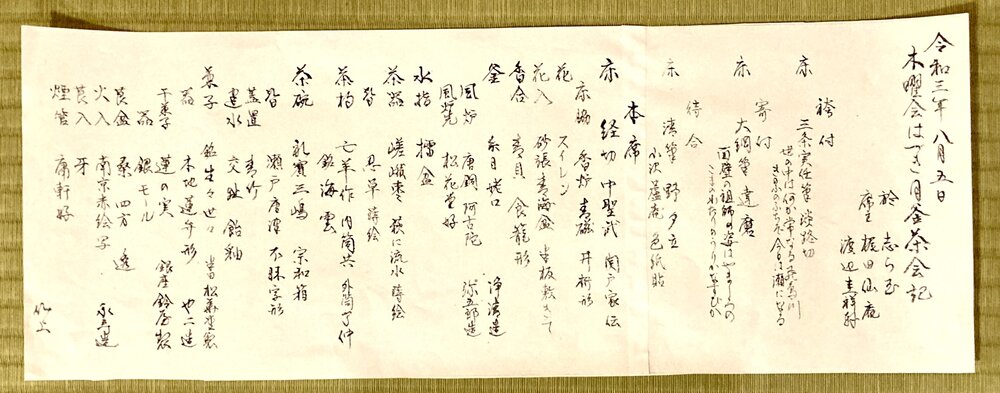 令和三年八月五日
木曜会はづき月釜茶会記
於 志ら玉
席主 梶田仙庵
渡辺吉祥財
袴付
床 三条実任筆 淡路切
世の中は何か常なる飛鳥川
きのふのふちそ今日は瀬になる
寄付
床 大綱筆 達磨
面壁の祖師の姿はやましろの
こまのわたりのうりかなすひか
待合
床 清筆 野夕立
小沢蘆庵 色紙貼
本席
床 経切 中聖武 関戸家伝
床脇 香炉 青磁 井桁形
花 スイレン
花入 砂張青海盆 杢板敷きて
香合 青貝 食籠形
釜 糸目姥口 浄清造
風炉 唐銅阿古陀 弥五郎造
風炉先 松花堂好
水指 擂盆
茶器 嵯峨棗 萩に流水蒔絵
替 忍草蒔絵
茶杓 亡羊作 内筒共 外筒了仲
銘 海雲
茶碗 乳賓三嶋 宗和箱
替 瀬戸唐津 不昧字形
蓋置 青竹
建水 交趾 飴釉
菓子 銘 生々世々 当松華堂製
器 木地蓮弁形 や二造
干菓子 蓮の実 銀座鈴屋製
器 銀モール
莨盆 桑 四方 透
火入 南京赤絵写 永楽造
莨入 牙
煙管 庸軒好
以上